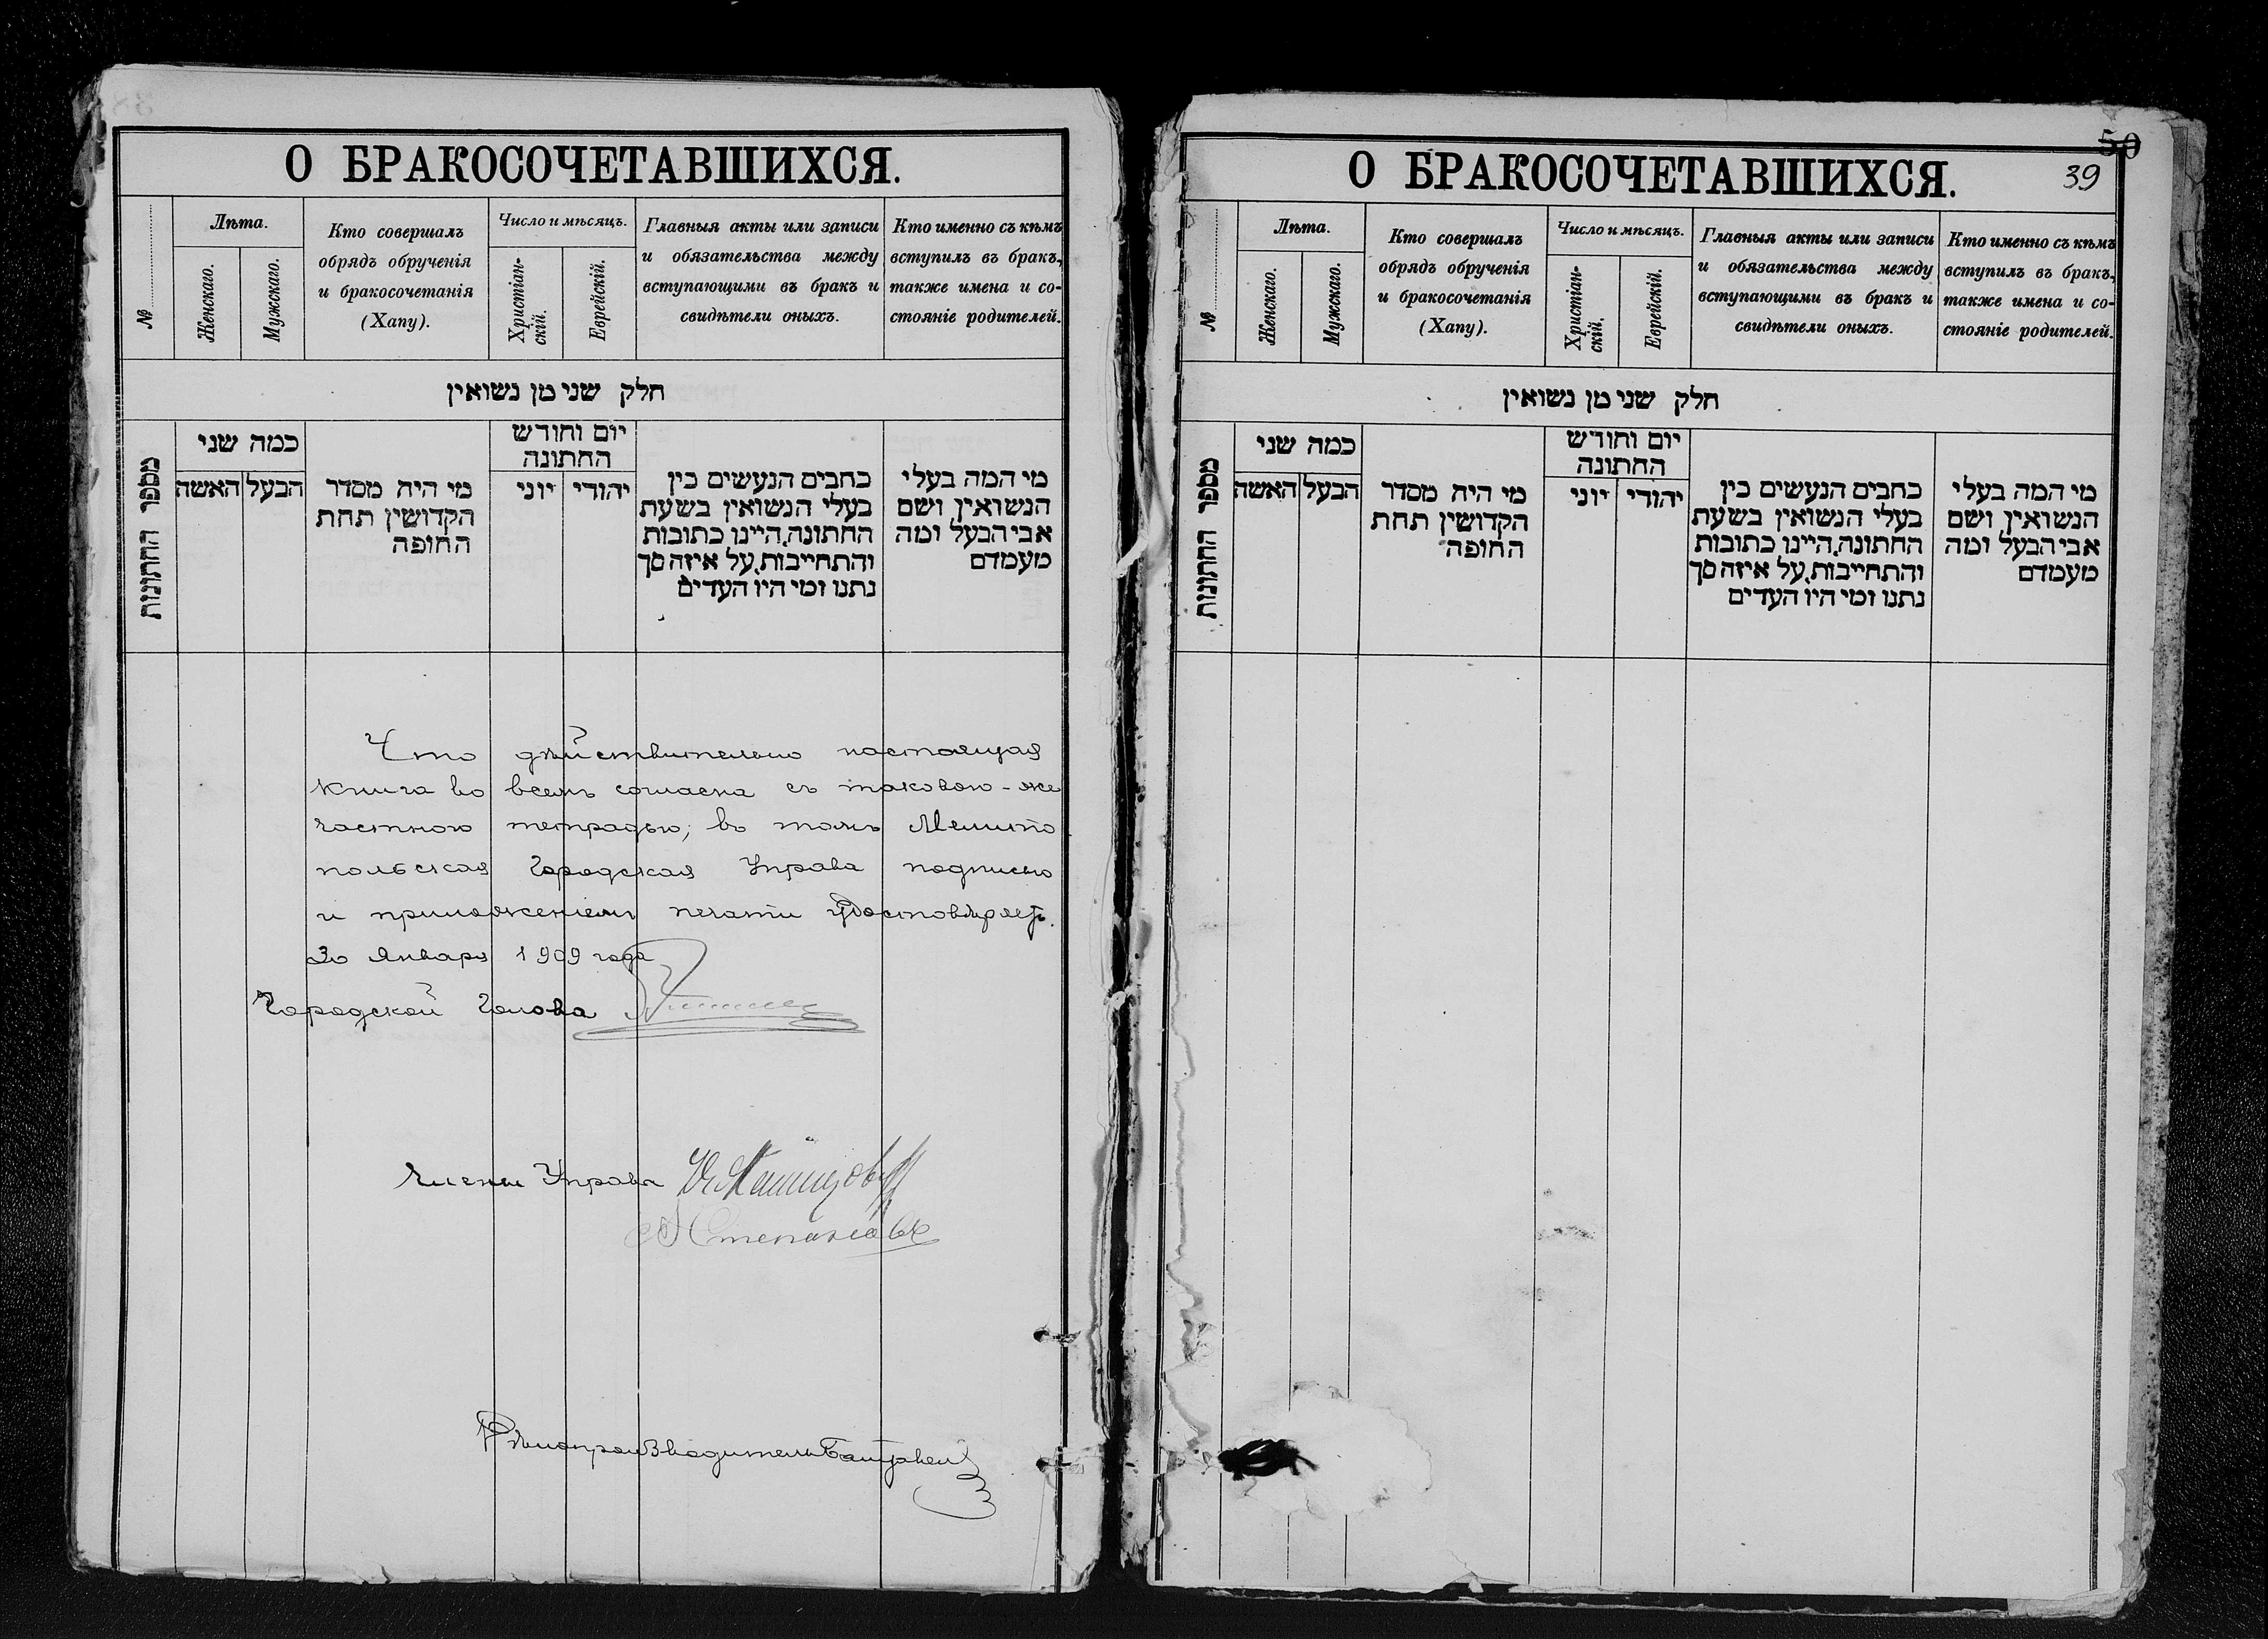 О БРАКОСОЧЕТАВШИХСЯ.
№
Лѣта.
Женскаго.
Мужскаго.
Кто совершалъ
обрядъ обрученія
и бракосочетанія
(Хапу).
Число и мѣсяцъ.
Христіан-
скій.
Еврейскій.
Главныя акты или записи
и обязательства между
вступающими въ бракъ и
свидѣтели оныхъ.
Кто именно съ кѣмъ
вступилъ въ бракъ,
также имена и со-
стояніе родителей.
חלק שני מן נשואין
מספר החתונות
כמה שני
הבעל
האשה
מי היה מסדר
הקדושין תחת
החופה
יום וחודש
החתונה
יהודי
יוני
כתבים הנעשים בין
בעלי הנשואין בשעת
החתונה, היינו כתובות
והתחייבות, על איזה סך
נתנו ומי היו העדים
מי המה בעלי
הנשואין ושם
אבי הבעל ומה
מעמדם
Что дѣйствительно настоящая
книга во всемъ согласна съ таковою-же
частною тетрадью, въ томъ Мелито
польская Городская Управа подписью
и приложеніемъ печати удостовѣряетъ.
30 Января 1909 года
Городской Голова
Члены Управы
Степановъ
Дѣлопроизводитель
50
39
О БРАКОСОЧЕТАВШИХСЯ.
№
Лѣта.
Женскаго.
Мужскаго.
Кто совершалъ
обрядъ обрученія
и бракосочетанія
(Хапу).
Число и мѣсяцъ.
Христіан-
скій.
Еврейскій.
Главныя акты или записи
и обязательства между
вступающими въ бракъ и
свидѣтели оныхъ.
Кто именно съ кѣмъ
вступилъ въ бракъ,
также имена и со-
стояніе родителей.
חלק שני מן נשואין
מספר החתונות
כמה שני
הבעל
האשה
מי היה מסדר
הקדושין תחת
החופה
יום וחודש
החתונה
יהודי
יוני
כתבים הנעשים בין
בעלי הנשואין בשעת
החתונה, היינו כתובות
והתחייבות, על איזה סך
נתנו ומי היו העדים
מי המה בעלי
הנשואין ושם
אבי הבעל ומה
מעמדם